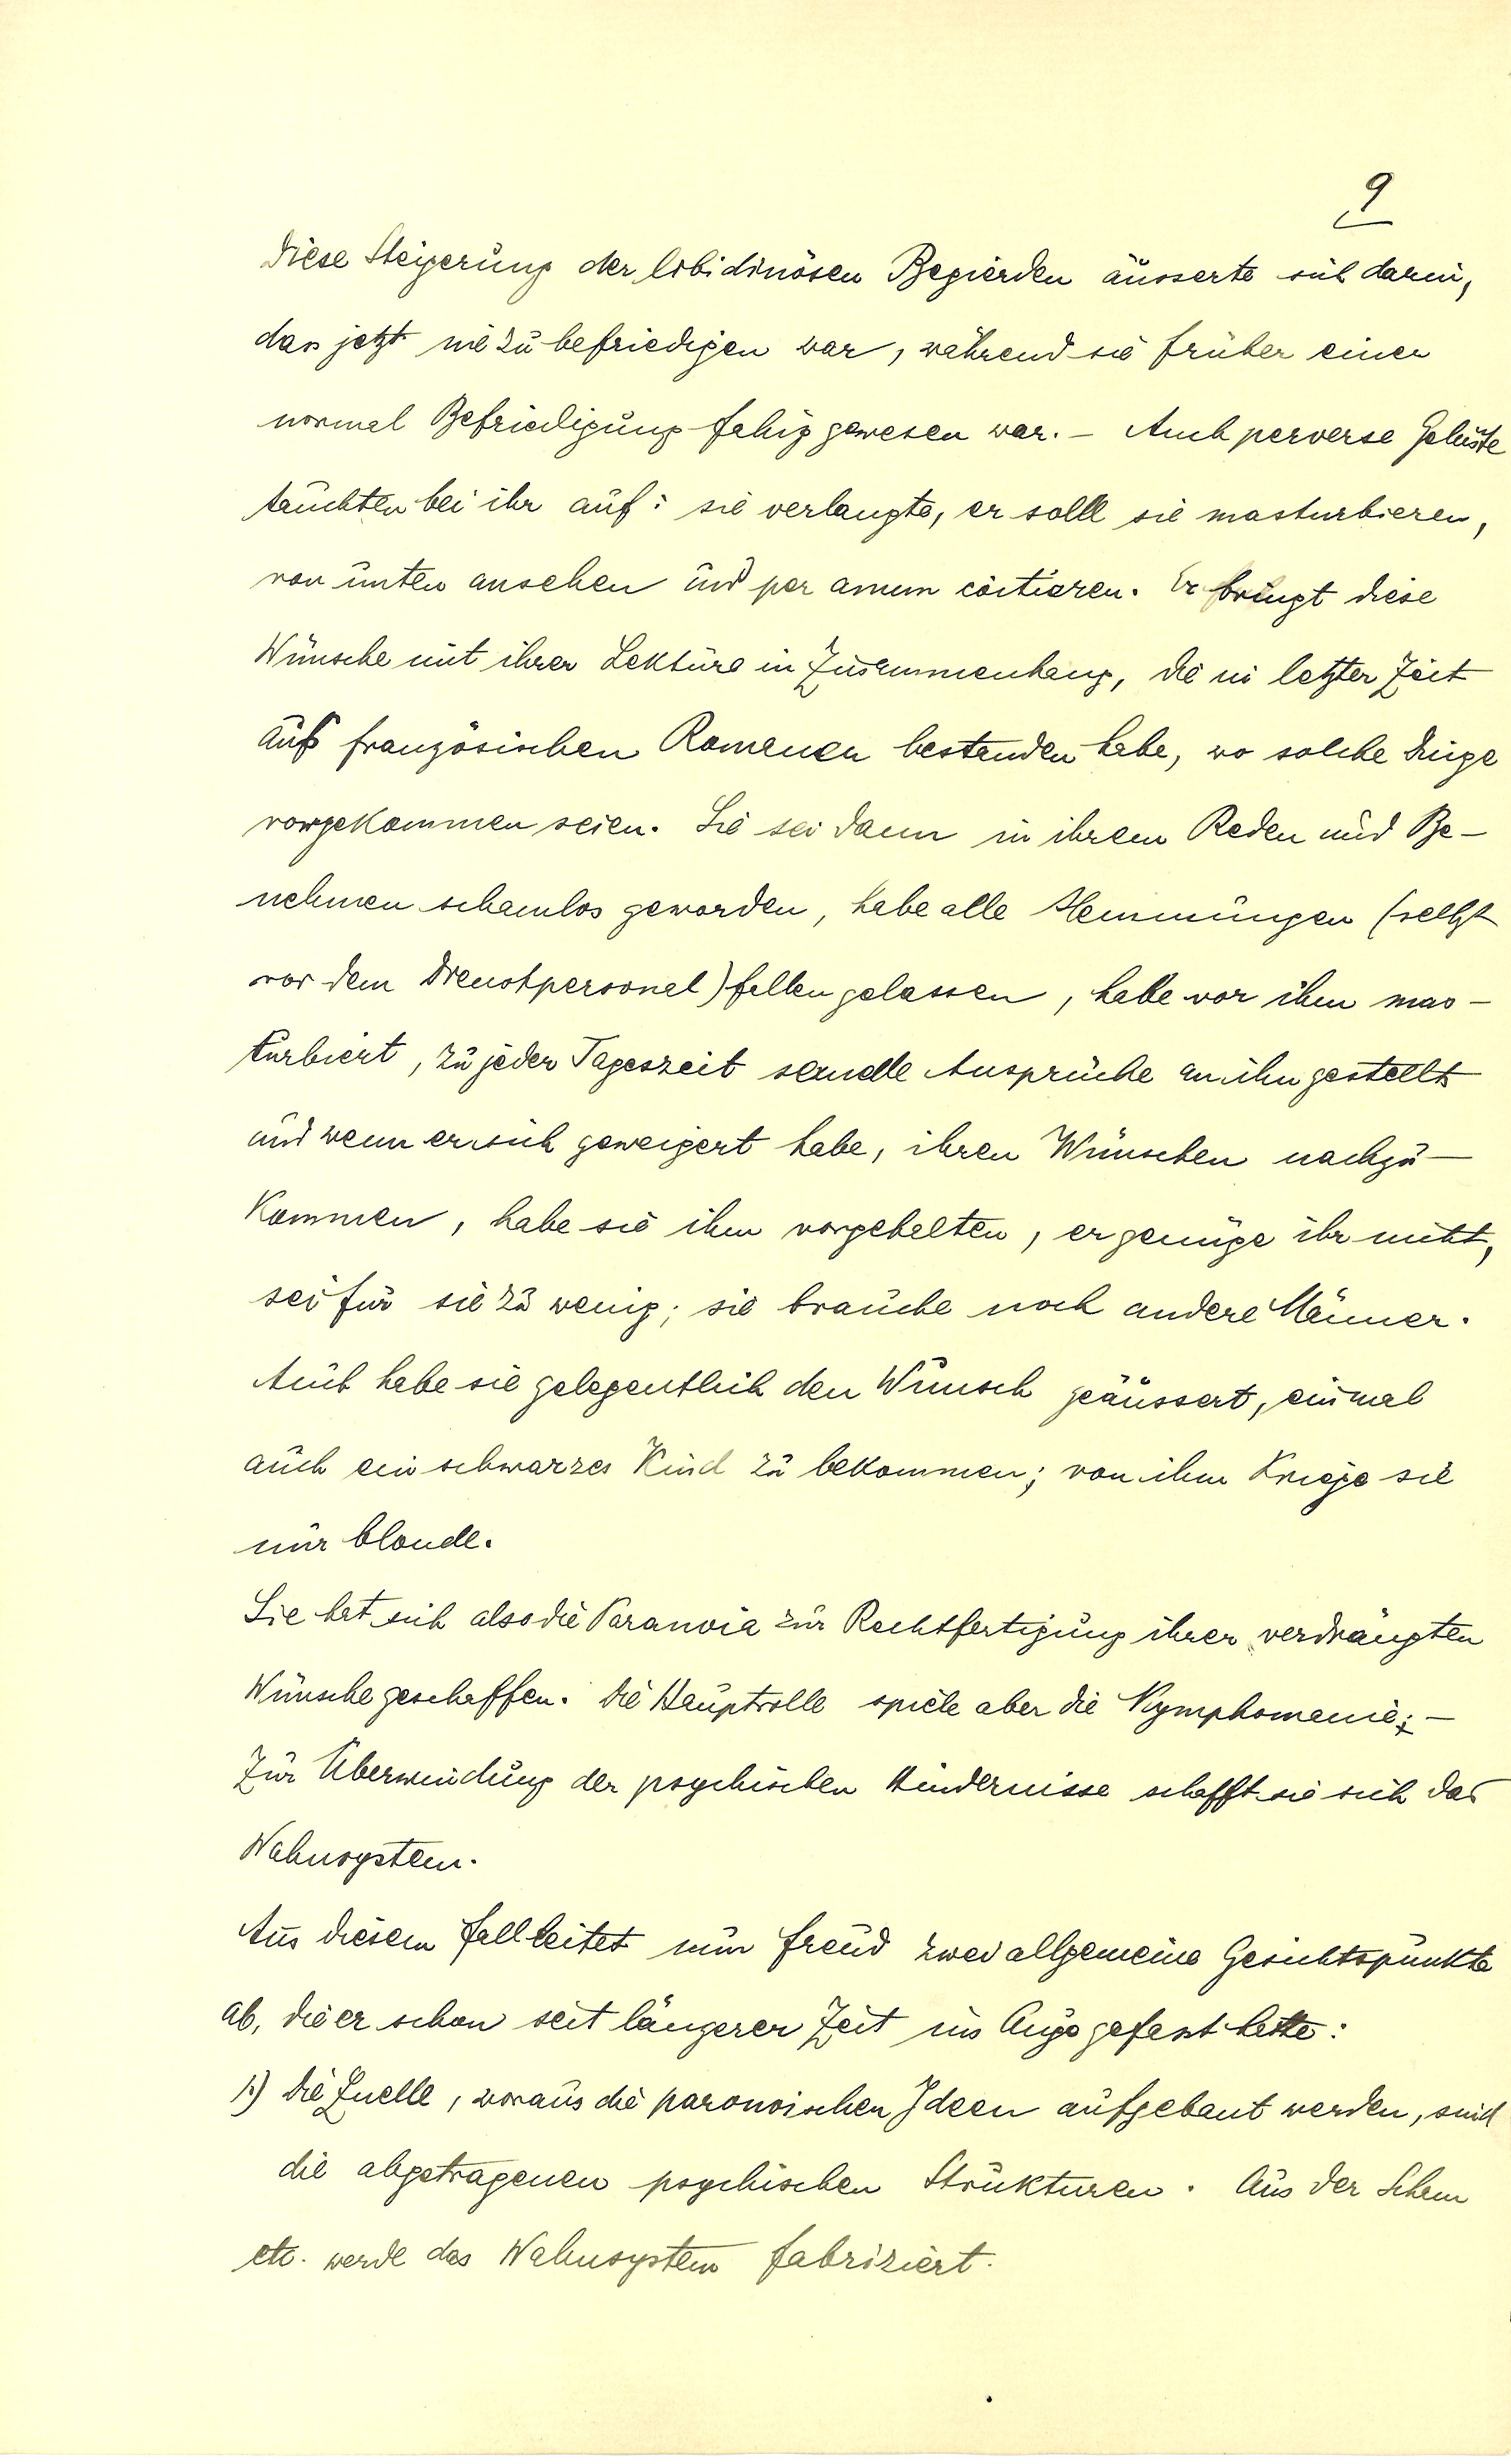 9
Diese Steigerung der libidinösen Begierden äusserte sich darin,
dass jetzt nie zu befriedigen war, während sie früher einer
normal Befriedigung fähig gewesen war. – Auch perverse Gelüste
tauchten bei ihr auf: sie verlangte, er solle sie masturbieren,
von unten ansehen und per anum coitieren. Er bringt diese
Wünsche mit ihrer Lektüre in Zusammenhang, die in letzter Zeit
aus französischen Romanen bestanden habe, wo solche Dinge
vorgekommen seien. Sie sei dann in ihrem Reden und Be-
nehmen schamlos geworden, habe alle Hemmungen (selbst
vor dem Dienstpersonal) fallen gelassen, habe vor ihm mas-
turbiert, zu jeder Tageszeit sexuelle Ansprüche an ihn gestellt
und wenn er sich geweigert habe, ihren Wünschen nachzu-
kommen, habe sie ihm vorgehalten, er genüge ihr nicht,
sei für sie zu wenig; sie brauche noch andere Männer.
Auch habe sie gelegentlich den Wunsch geäussert, einmal
auch ein schwarzes Kind zu bekommen; von ihm kriege sie
nur blonde.
Sie hat sich also die Paranoia zur Rechtfertigung ihrer verdrängten
Wünsche geschaffen. Die Hauptrolle spiele aber die Nymphomanie; –
Zur Überwindung der psychischen Hindernisse schafft sie sich das
Wahnsystem.
Aus diesem Fall leitet nun Freud zwei allgemeine Gesichtspunkte
ab, die er schon seit längerer Zeit ins Auge gefasst hatte:
1.) Die Quelle, woraus die paranoischen Ideen aufgebaut werden, sind
die abgetragenen psychischen Strukturen. Aus der Scham
etc. werde das Wahnsystem fabriziert.